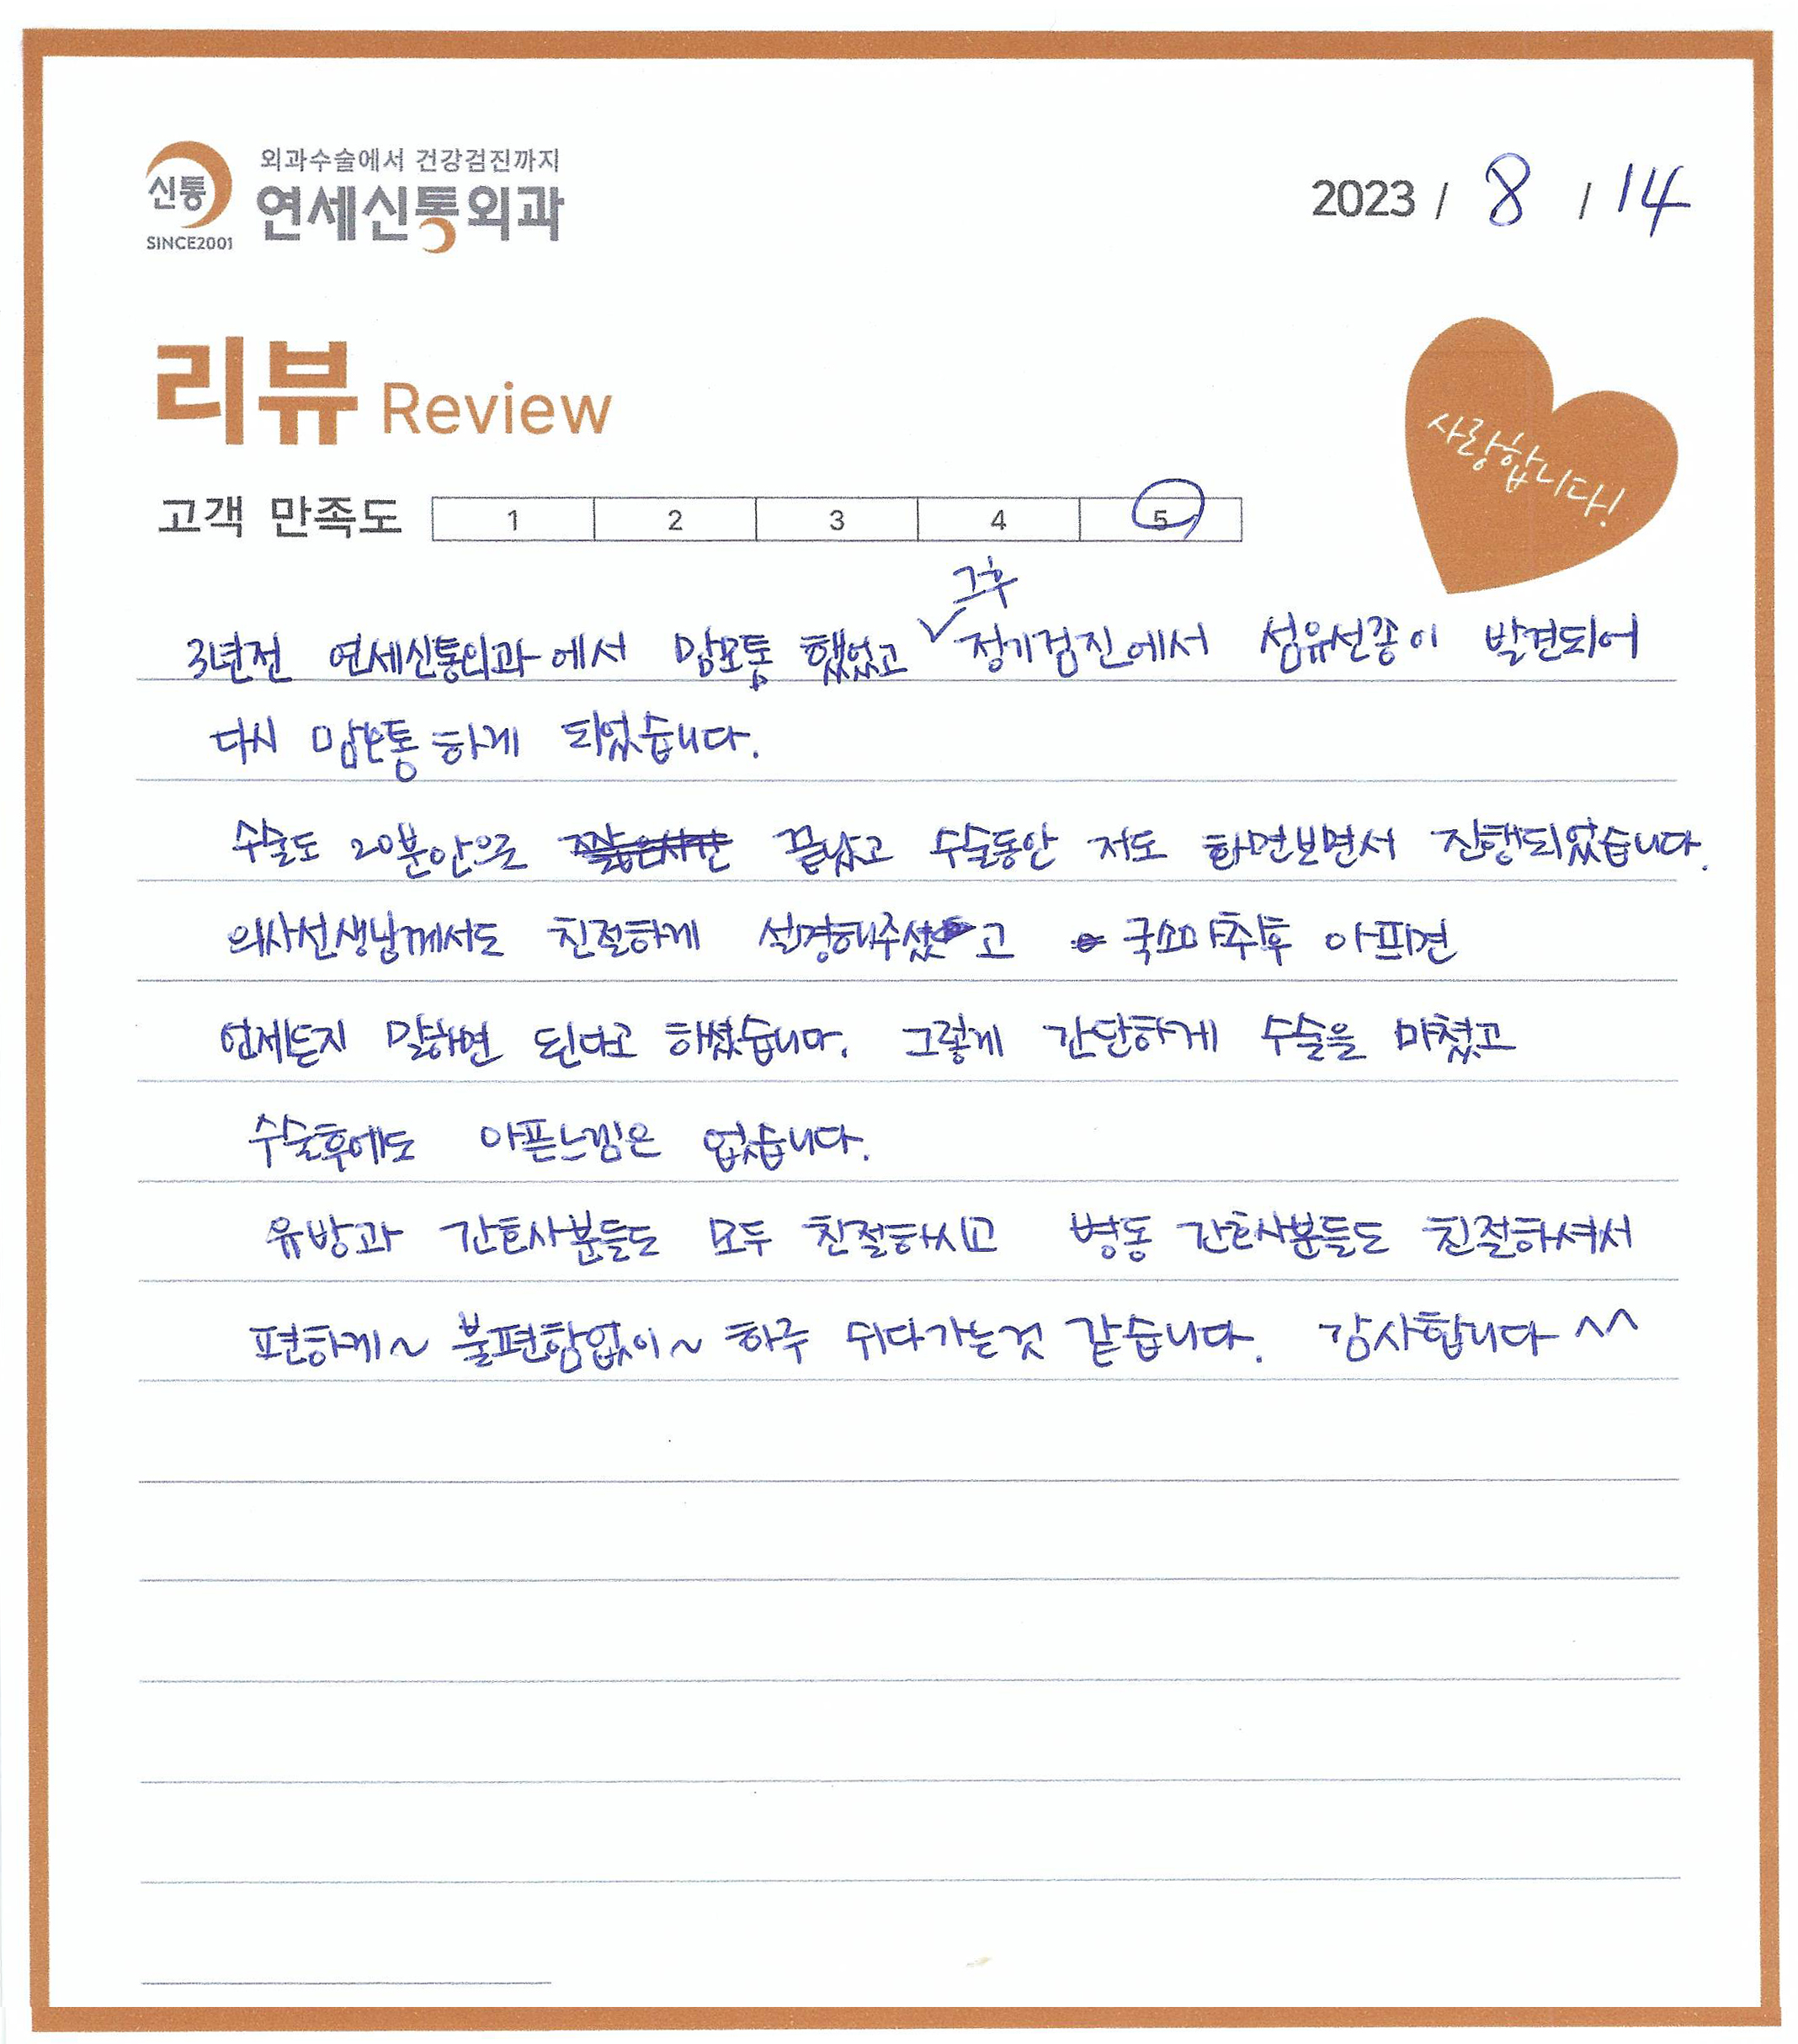 신통
SINCE2001
외과수술에서 건강검진까지
연세신통외과
2023 / 8 / 14
리뷰 Review
사랑합니다!
고객 만족도 1 2 3 4 5
그후
3년전 연세신통외과에서 맘모톰 했었고 정기검진에서 섬유선종이 발견되어
다시 맘모톰 하게 되었습니다.
수술도 20분안으로 끝났고 수술동안 저도 화면보면서 진행되었습니다.
의사선생님께서도 친절하게 설명해주셨고 국소마취후 아프면
언제든지 말하면 된다고 하셨습니다. 그렇게 간단하게 수술을 마쳤고
수술후에도 아픈느낌은 없습니다.
유방과 간호사분들도 모두 친절하시고 병동 간호사분들도 친절하셔서
편하게~ 불편함없이~ 하루 쉬다가는것 같습니다. 감사합니다 ^^